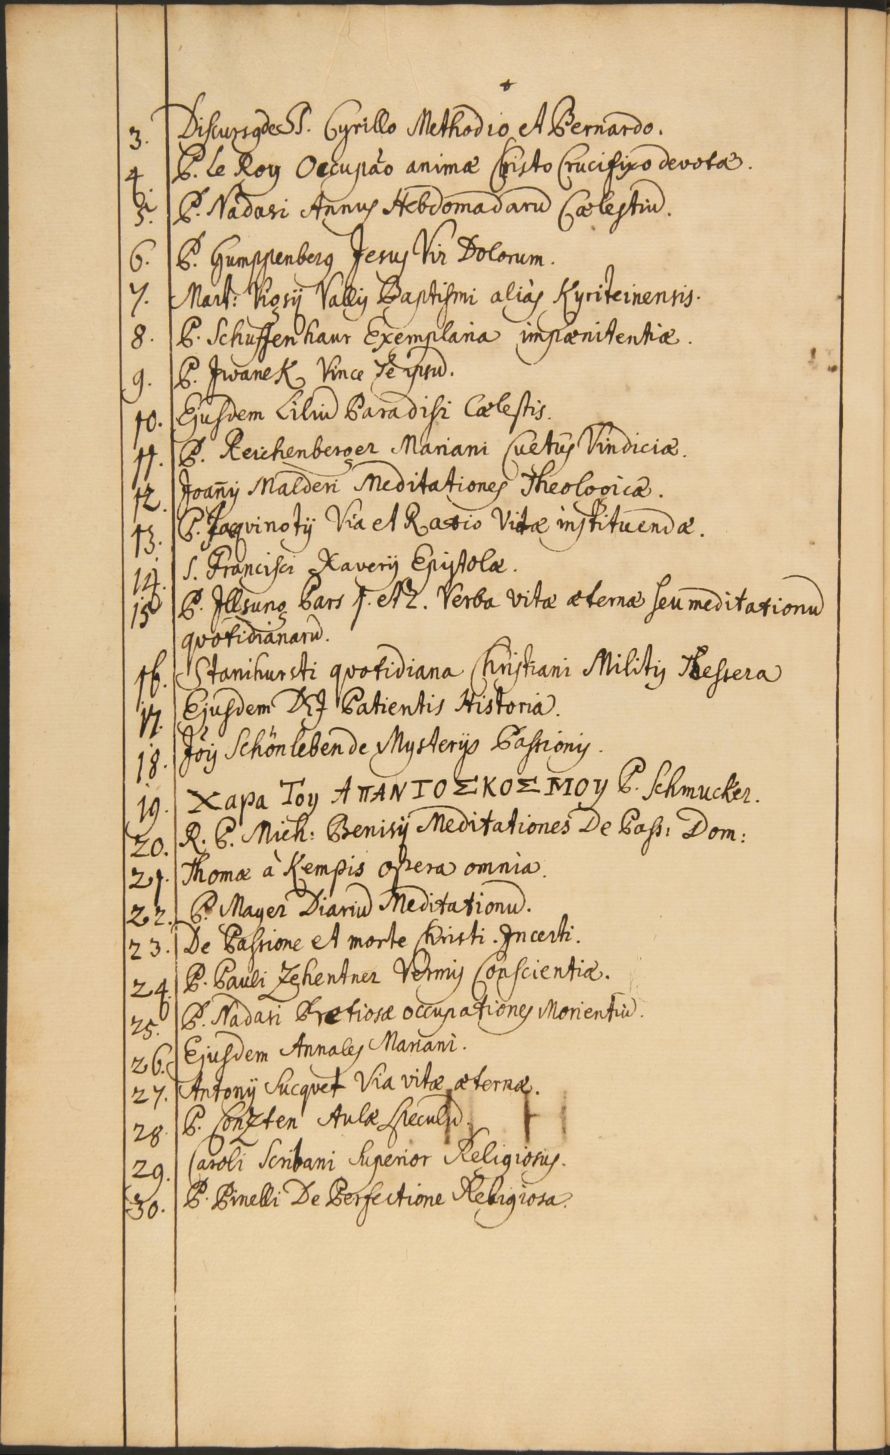 3. Discursq de SS. Cyrillo Methodio et Bernardo.
4. P. Le Roy Occupáo animæ Christo Crucifixo devotæ.
5. P. Nadasi Annus Hebdomadarū Cœlestiū.
6. P. Gumppenberg Jesus Vir Dolorum.
7. Mart: Vigsÿ Vallis Baptismi aliàs Kyriteinensis.
8. P. Schuffenhaur Exemplaria impœnitentiæ.
9. P. Jwanek Vince Te ipsū.
10. Ejusdem Liliū Paradisi Cœlestis.
11. P. Reichenberger Mariani Cultûs Vindiciæ.
12. Joañis Malderi Meditationes Theologicæ.
13. P. Jaqvinotij Via et Ratio Vitæ instituendæ.
14. S. Francisci Xaverij Epistolæ.
15 P. Jllsung Pars 1. et 2. Verba vitæ æternæ seu meditationū
quotidianarū.
16. Stanihursti quotidiana Christiani Militis Thessera
17. Ejusdem DEJ Patientis Historia.
18. Jois Schönleben de Mysterijs Passionis.
19. Χαρα Τοу ΑπΑΝΤΟΣΚΟΣΜΟУ P. Schmucker.
20. R. P. Mich: Benisÿ Meditationes De Pass: Dom:
21. Thomæ à Kempis opera omnia.
22. P. Mayer Diariū Meditationū.
23. De Passione et morte Christi. Jncerti.
24. P. Pauli Zehentner Vermis Conscientiæ.
25. P. Nadasi Pretiosæ occupationes Morientiū.
26. Ejusdem Annales Mariani.
27. Antonij Sucqvet Via vitæ æternæ.
28. P. Conzten Aulæ Speculū.
29. Caroli Scribani Superior Religiosus.
30. P. Pinelli De Perfectione Religiosa.